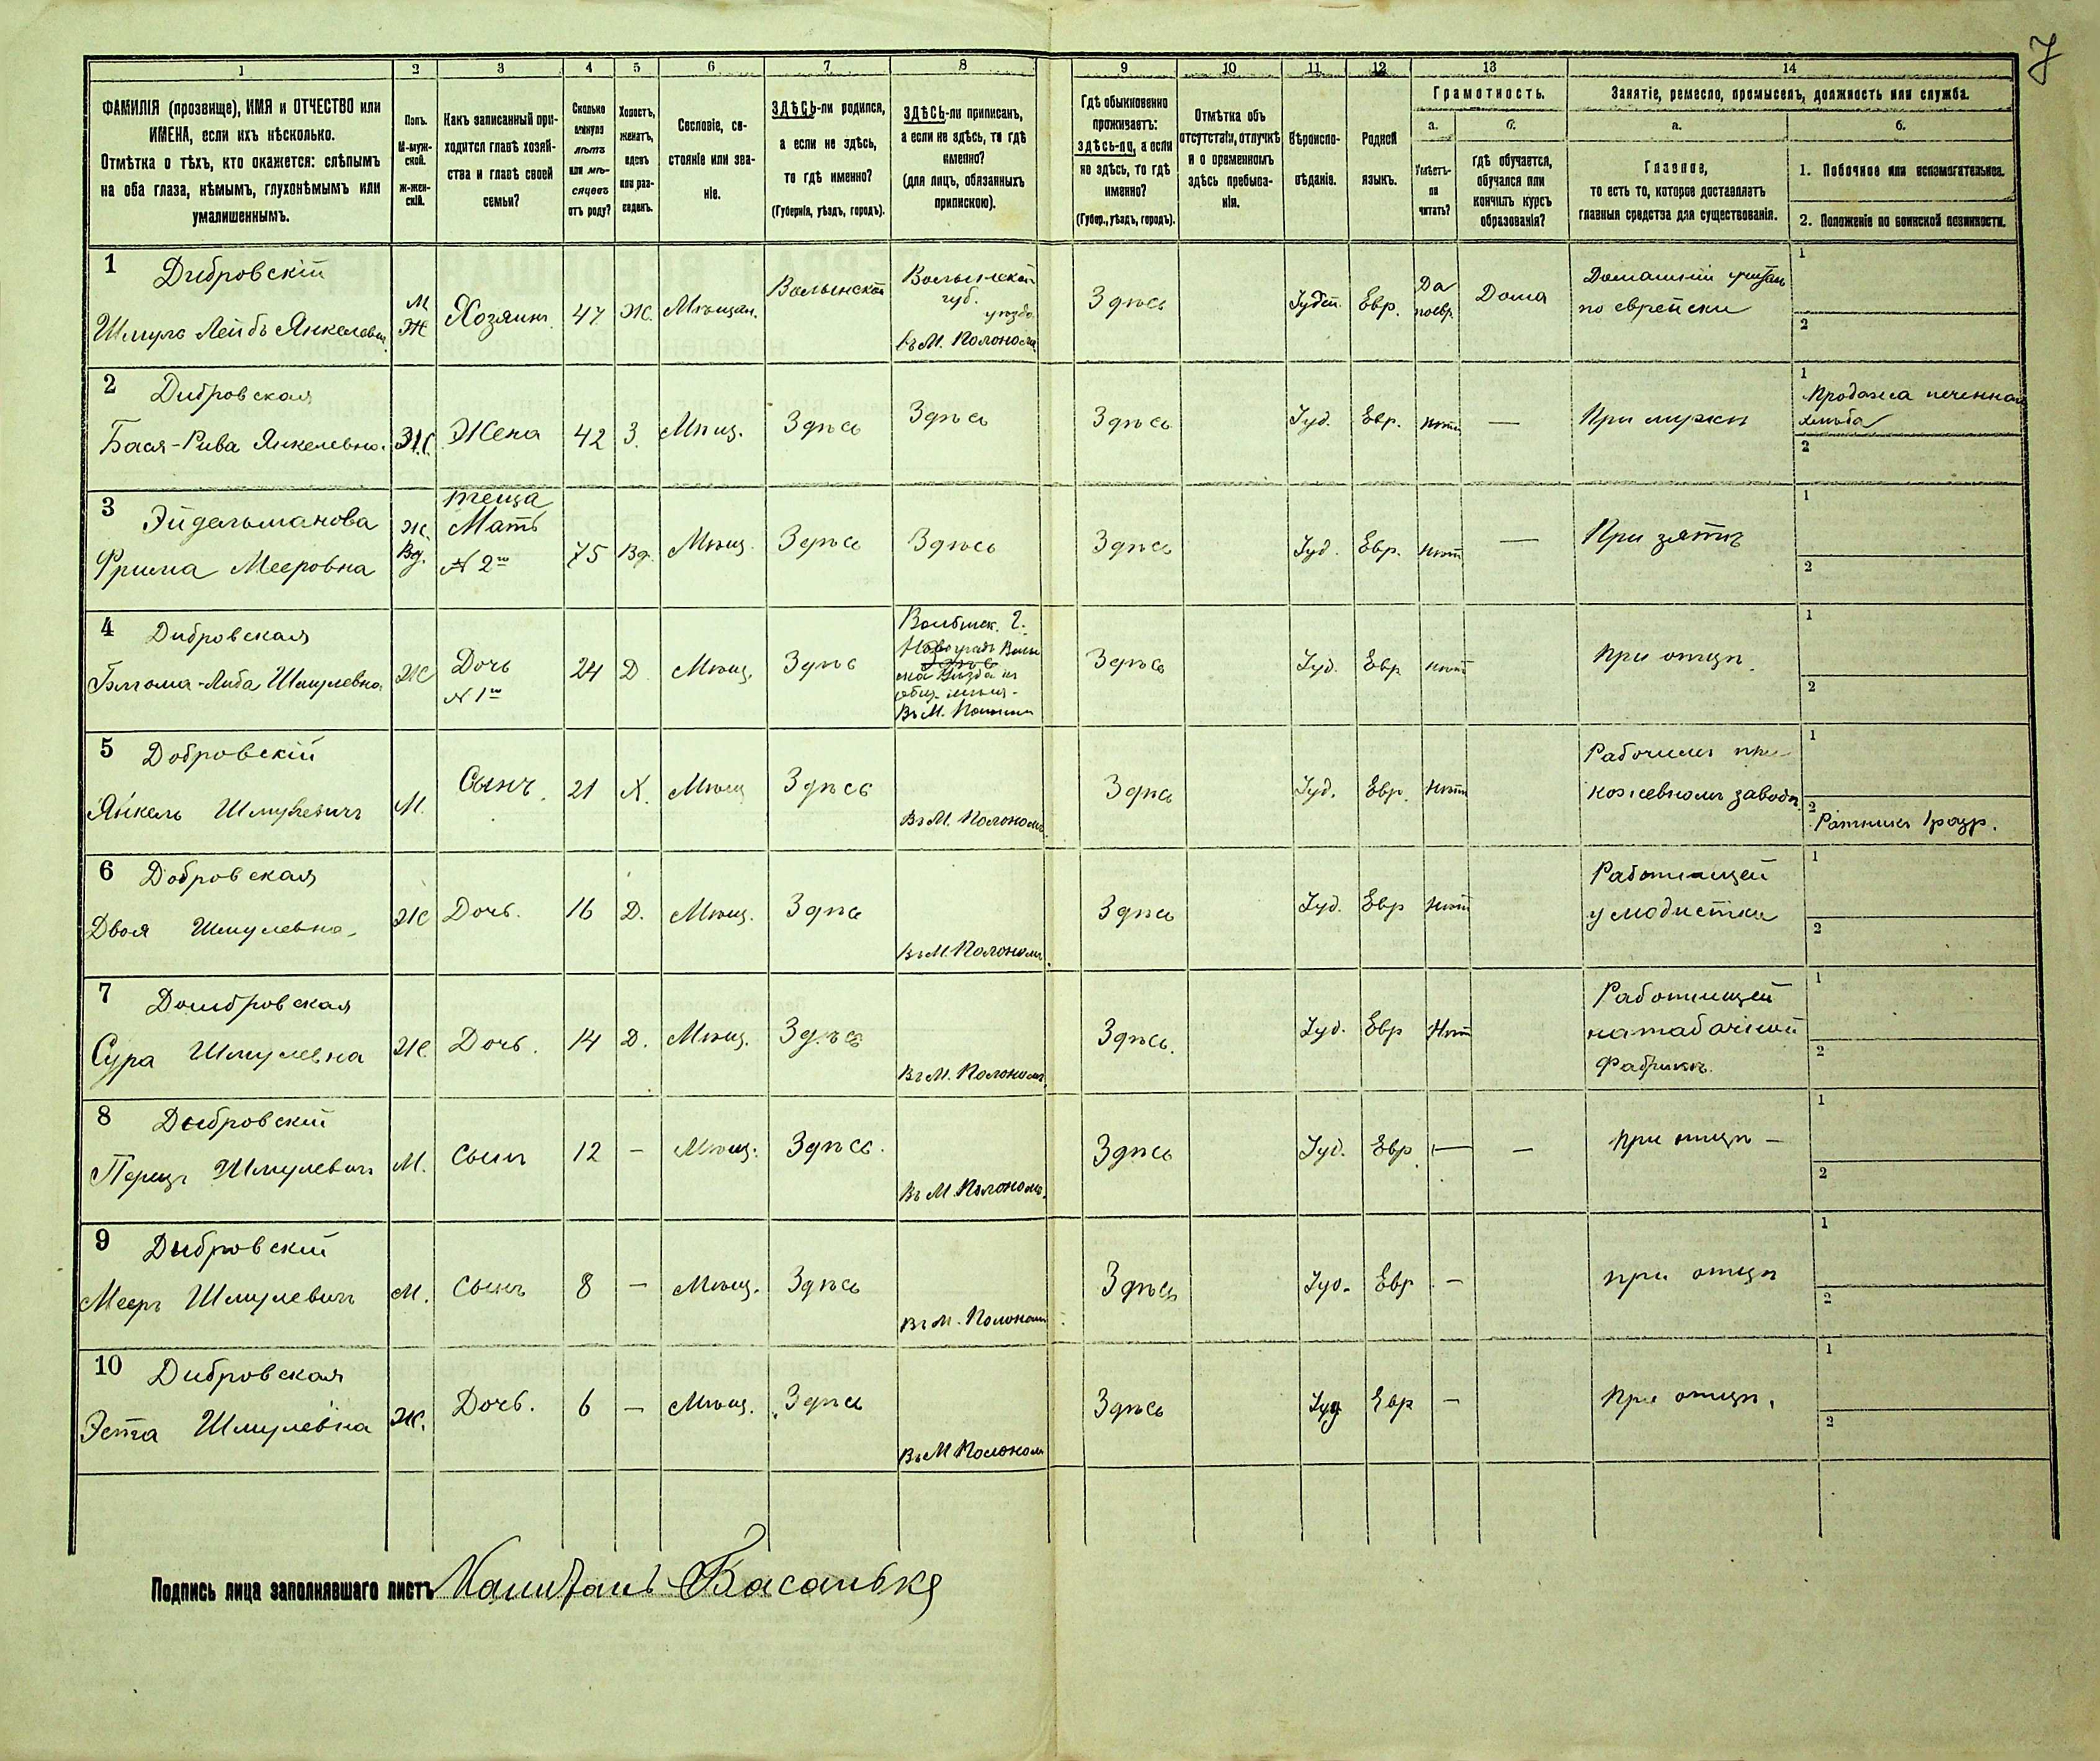 7
1 2 3 4 5 6 7 8 9 10 11 12 13 14
ФАМИЛІЯ (прозвище), ИМЯ и ОТЧЕСТВО или
ИМЕНА, если ихъ нѣсколько.
Отмѣтка о тѣхъ, кто окажется: слѣпымъ
на оба глаза, нѣмымъ, глухонѣмымъ или
умалишеннымъ.
Полъ.
М-муж-
ской.
ж-жен-
скій.
Какъ записанный при-
ходится главѣ хозяй-
ства и главѣ своей
семьи?
Сколько
минуло
лѣтъ
или мѣ-
сяцевъ
отъ роду?
Холостъ,
женатъ,
вдовъ
или раз-
веденъ.
Сословіе, со-
стояніе или зва-
ніе.
ЗДѢСЬ-ли родился,
а если не здѣсь,
то гдѣ именно?
(Губернія, уѣздъ, городъ).
ЗДѢСЬ-ли приписанъ,
а если не здѣсь, то гдѣ
именно?
(для лицъ, обязанныхъ
припискою).
Гдѣ обыкновенно
проживаетъ:
здѣсь-ли, а если
не здѣсь, то гдѣ
именно?
(Губер., уѣздъ, городъ).
Отмѣтка объ
отсутствіи, отлучкѣ
и о временномъ
здѣсь пребыва-
ніи.
Вѣроиспо-
вѣданіе.
Родной
языкъ.
Грамотность.
а. б.
Умѣетъ-
ли
читать?
гдѣ обучается,
обучался или
кончилъ курсъ
образованія?
Занятіе, ремесло, промыселъ, должность или служба.
а. б.
Главное,
то есть то, которое доставляетъ
главныя средства для существованія.
1. Побочное или вспомогательное.
2. Положеніе по воинской повинности.
1 Дибровскій
Шмуль Лейбъ Янкелевич
М
Ж
Хозяинъ 47 Ж. Мѣщан.
Волынской
Волынской
губ.
уѣзда
Въ М. Полономъ
Здѣсь Іудей. Евр.
Да
поевр.
Дома
Домашній учитель
по еврейски
1
2
2 Дибровская
Бася-Рива Янкелевна. Ж. Жена 42 З. Мѣщ. Здѣсь Здѣсь Здѣсь Іуд. Евр. нѣтъ — При мужѣ
1
Продажа печеннаго
хлѣба
2
3 Эйдельманова
Фрима Мееровна
Ж.
Вд.
теща
Мать
№ 2го
75 Вд. Мѣщ. Здѣсь Здѣсь Здѣсь Іуд. Евр. нѣтъ — При зятѣ
1
2
4 Дибровская
Блюма-Либа Шмулевна Ж
Дочь
№ 1го
24 Д Мѣщ. Здѣсь
Волынск. г.
Новоградъ Волы
Въ М. Полоном
Здѣсь Іуд. Евр нѣтъ При отцѣ.
1
2
5 Добровскій
Янкель Шмулевичъ М. Сынъ. 21 Х. Мѣщ Здѣсь Въ М. Полономъ. Здѣсь Іуд. Евр. нѣтъ
Рабочимъ при
кожевномъ заводѣ
1
2
Ратникъ 1 разр.
6 Добровская
Двоя Шмулевна. Ж Дочь. 16 Д. Мѣщ. Здѣсь Въ М. Полономъ. Здѣсь Іуд. Евр нѣтъ
Работницей
у модистки
1
2
7 Домбровская
Сура Шмулевна Ж. Дочь. 14 Д. Мѣщ. Здѣсь Въ М. Полономъ. Здѣсь. Іуд. Евр Нѣтъ
Работницей
на табачной
фабрикѣ.
1
2
8 Дыбровскій
Перецъ Шмулевичъ М. Сынъ 12 — Мѣщ. Здѣсь. Въ М. Полономъ. Здѣсь Іуд. Евр. — — При отцѣ —
1
2
9 Дыбровскій
Мееръ Шмулевичъ М. Сынъ 8 — Мѣщ. Здѣсь Въ М. Полоном Здѣсь Іуд. Евр — При отцѣ
1
2
10 Дибровская
Эстa Шмулевна Ж. Дочь. 6 — Мѣщ. Здѣсь Въ М Полоном Здѣсь Іуд Евр — При отцѣ.
1
2
Подпись лица заполнявшаго листъ Капитанъ Басанько